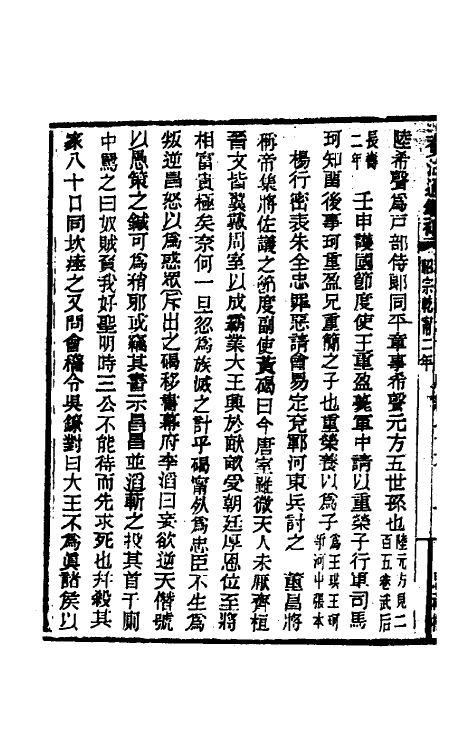 昭宗乾甯二年
陸希聲爲戸部侍郎同平章事希聲元方五世孫也陸元方見二百五卷武后
長壽二年 壬申護國節度使王重盈薨軍中請以重榮子行軍司馬
珂知畱後事珂重盈兄重簡之子也重榮養以爲子爲王珙王珂爭河中張本
楊行密表朱全忠罪惡請會易定兗鄆河東兵討之 董昌將
稱帝集將佐議之節度副使黃碣曰今唐室雖微天人未厭齊桓
晉文皆翼戴周室以成霸業大王興於畎畝受朝廷厚恩位至將
相富貴極矣奈何一旦忽爲族滅之計乎碣甯死爲忠臣不生爲
叛逆昌怒以爲惑眾斥出之碣移書幕府李滔曰妄欲逆天僭號
以愚策之鍼可爲稍耶或竊其書示昌昌並滔斬之投其首于厠
中罵之曰奴賊負我好聖明時三公不能待而先求死也幷殺其
家八十口同坎瘞之又問會稽令吳鐐對曰大王不爲眞諸侯以